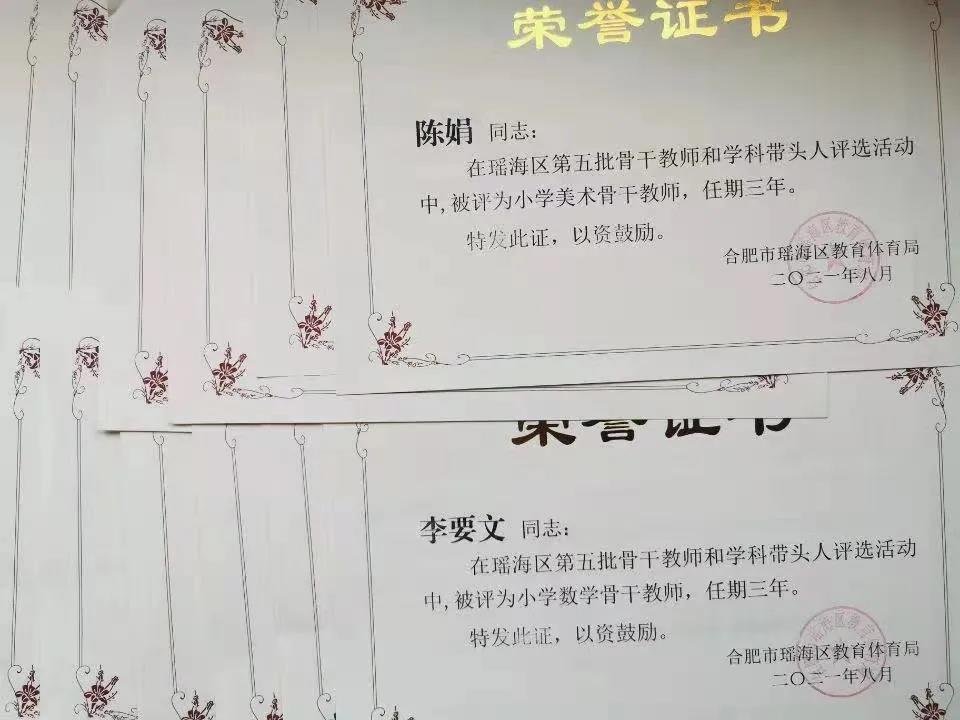 荣誉证书
陈娟 同志：
在瑶海区第五批骨干教师和学科带头人评选活动
中，被评为小学美术骨干教师，任期三年。
特发此证，以资鼓励。
合肥市瑶海区教育体育局
二〇二一年八月
荣誉证书
李要文 同志：
在瑶海区第五批骨干教师和学科带头人评选活动
中，被评为小学数学骨干教师，任期三年。
特发此证，以资鼓励。
合肥市瑶海区教育体育局
二〇二一年八月